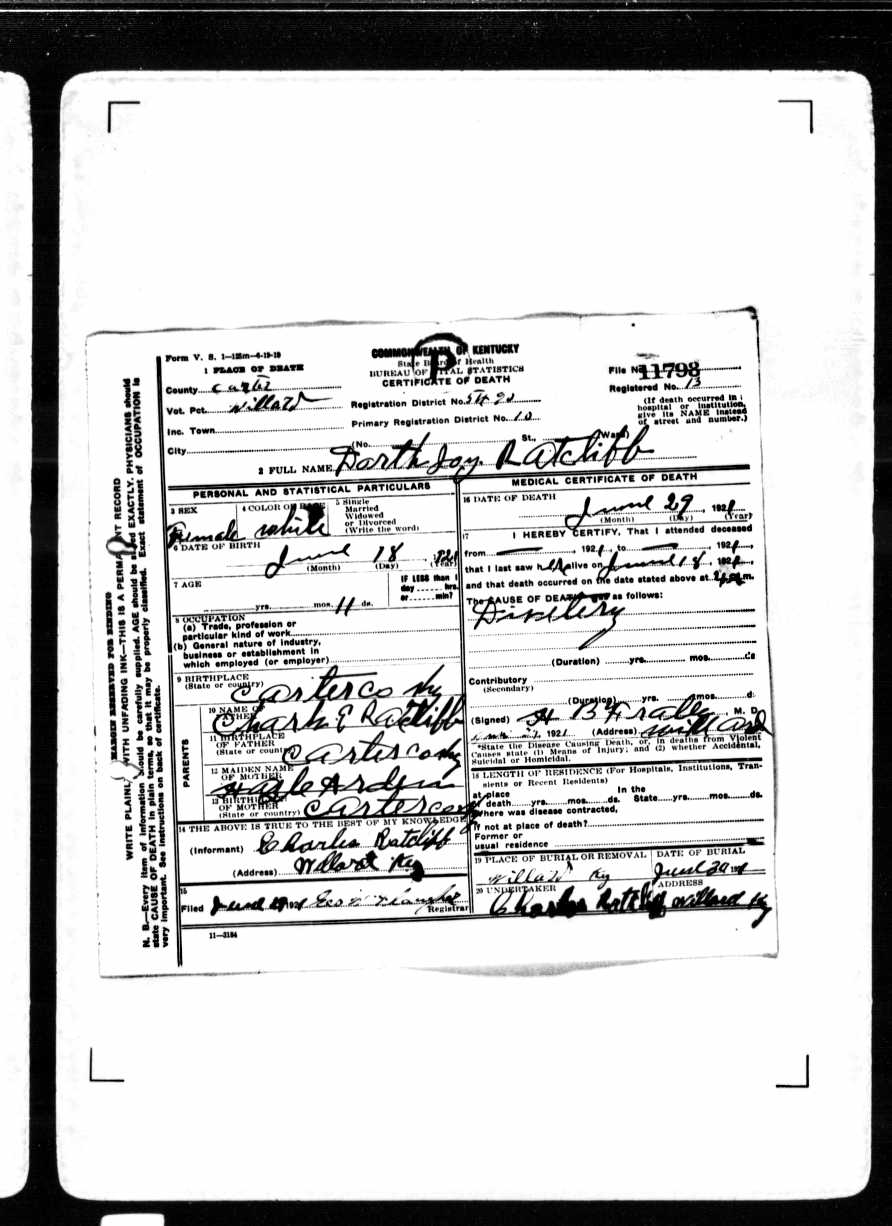 WRITE PLAINLY WITH UNFADING INK—THIS IS A PERMANENT RECORD
MARGIN RESERVED FOR BINDING
N. B.—Every item of information should be carefully supplied. AGE should be stated EXACTLY. PHYSICIANS should
state CAUSE OF DEATH in plain terms, so that it may be properly classified. Exact statement of OCCUPATION is
very important. See instructions on back of certificate.
Form V. S. 1—125m—4-19-19
COMMONWEALTH OF KENTUCKY
State Board of Health
BUREAU OF VITAL STATISTICS
CERTIFICATE OF DEATH
1 PLACE OF DEATH
County Carter
Vot. Pct. Willard
Inc. Town
City
Registration District No.
Primary Registration District No. 10
(No. St., Ward)
File No. 11793
Registered No. 13
(If death occurred in
hospital or institution,
give its NAME instead
of street and number.)
2 FULL NAME Dorth Joy Ratcliff
PERSONAL AND STATISTICAL PARTICULARS
3 SEX
Female
4 COLOR OR RACE
white
5 Single
Married
Widowed
or Divorced
(Write the word)
6 DATE OF BIRTH
June 18
(Month) (Day) (Year)
7 AGE
yrs. mos. 11 ds.
IF LESS than 1
day hrs.
or min?
8 OCCUPATION
(a) Trade, profession or
particular kind of work
(b) General nature of industry,
business or establishment in
which employed (or employer)
9 BIRTHPLACE
(State or country) Carter co Ky
PARENTS
10 NAME OF
FATHER
Ratcliff
11 BIRTHPLACE
OF FATHER
(State or country) Carter co Ky
12 MAIDEN NAME
OF MOTHER
13 BIRTHPLACE
OF MOTHER
(State or country) Carter co Ky
14 THE ABOVE IS TRUE TO THE BEST OF MY KNOWLEDGE
(Informant) Charles Ratcliff
(Address) Willard Ky
15
Filed June 1921
Registrar
11—3184
MEDICAL CERTIFICATE OF DEATH
16 DATE OF DEATH
June 29, 1921
(Month) (Day) (Year)
17
I HEREBY CERTIFY, That I attended deceased
from , 1921, to , 1921,
that I last saw her alive on June 18, 1921,
and that death occurred on the date stated above at m.
The CAUSE OF DEATH was as follows:
(Duration) yrs. mos. ds
Contributory
(Secondary)
(Duration) yrs. mos. d
(Signed) H B Fraley, M. D.
, 1921 (Address) Willard
*State the Disease Causing Death, or, in deaths from Violent
Causes state (1) Means of Injury; and (2) whether Accidental,
Suicidal or Homicidal.
18 LENGTH OF RESIDENCE (For Hospitals, Institutions, Tran-
sients or Recent Residents)
At place In the
of death yrs. mos. ds. State yrs. mos. ds.
Where was disease contracted,
If not at place of death?
Former or
usual residence
19 PLACE OF BURIAL OR REMOVAL
Willard Ky
DATE OF BURIAL
June
20 UNDERTAKER
Charles Ratcliff
ADDRESS
Willard Ky